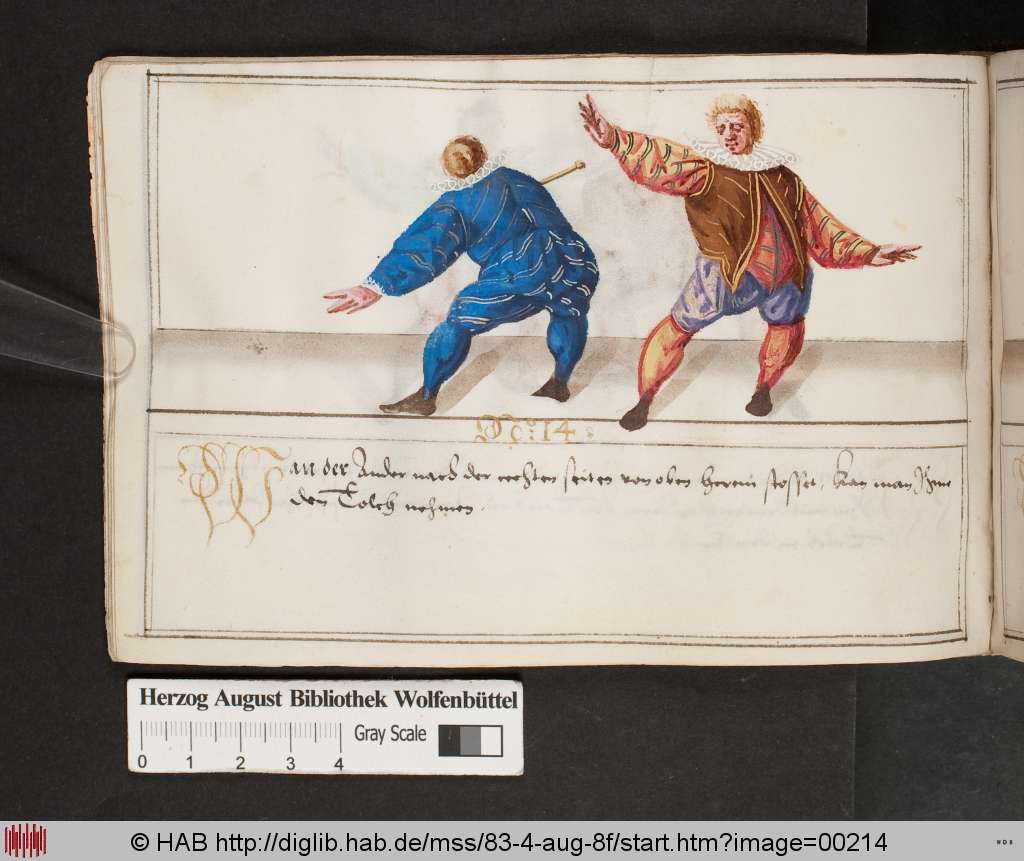 No: 14.
Wan der Ander nach der rechten seiten von oben herein stosset, kan man Ihme
den Tolch nehmen.
Herzog August Bibliothek Wolfenbüttel
Gray Scale
0 1 2 3 4
© HAB http://diglib.hab.de/mss/83-4-aug-8f/start.htm?image=00214
WDB